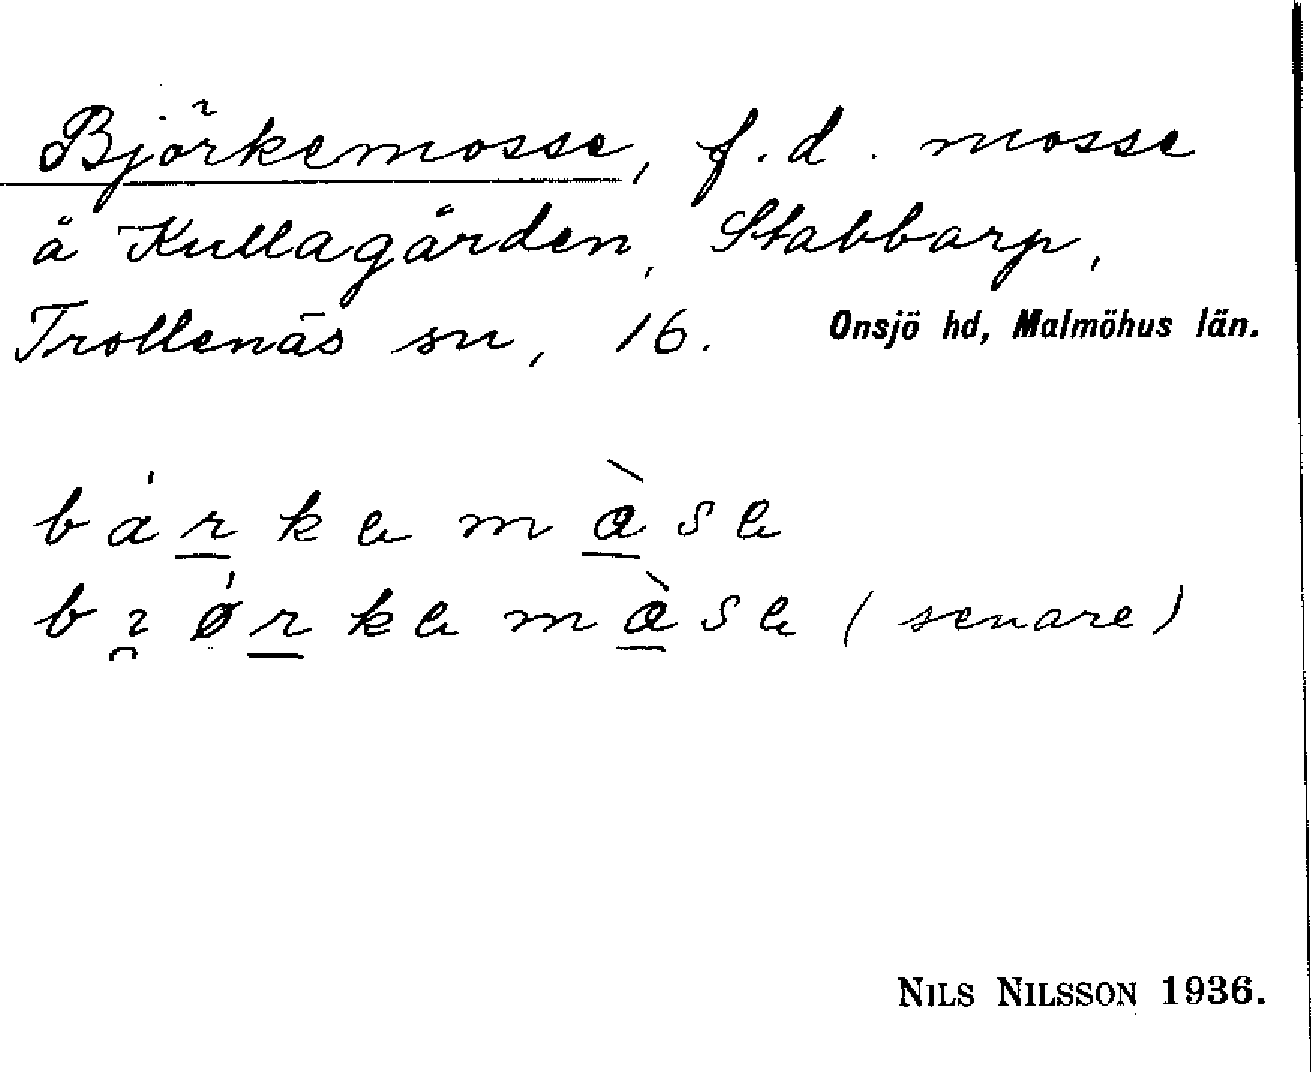 Björkemosse, f.d. mosse
å Kullagården, Stabbarp,
Trollenäs sn, 16. Onsjö hd, Malmöhus län.
(senare)
NILS NILSSON 1936.